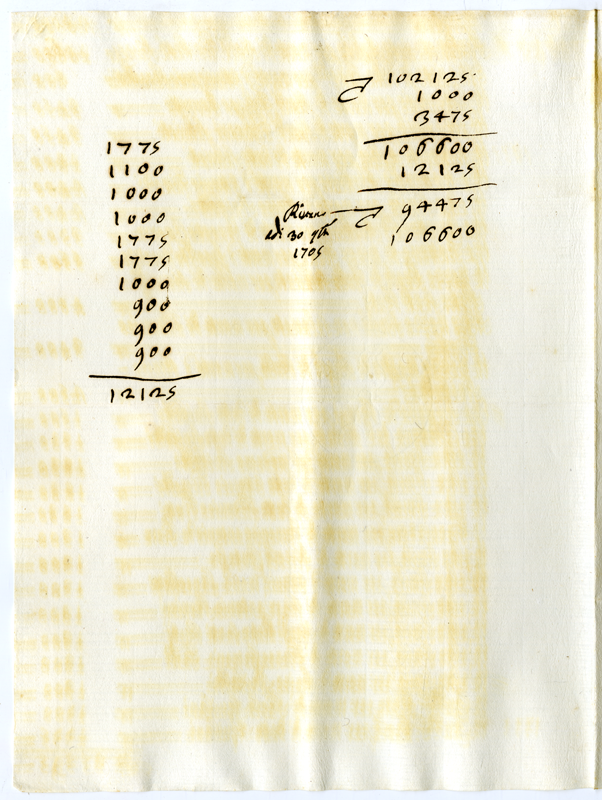 1775
1100
1000
1000
1775
1775
1000
900
900
900
12125
102125
1000
3475
106600
12125
94475
adi 30 9bre
106600
1705